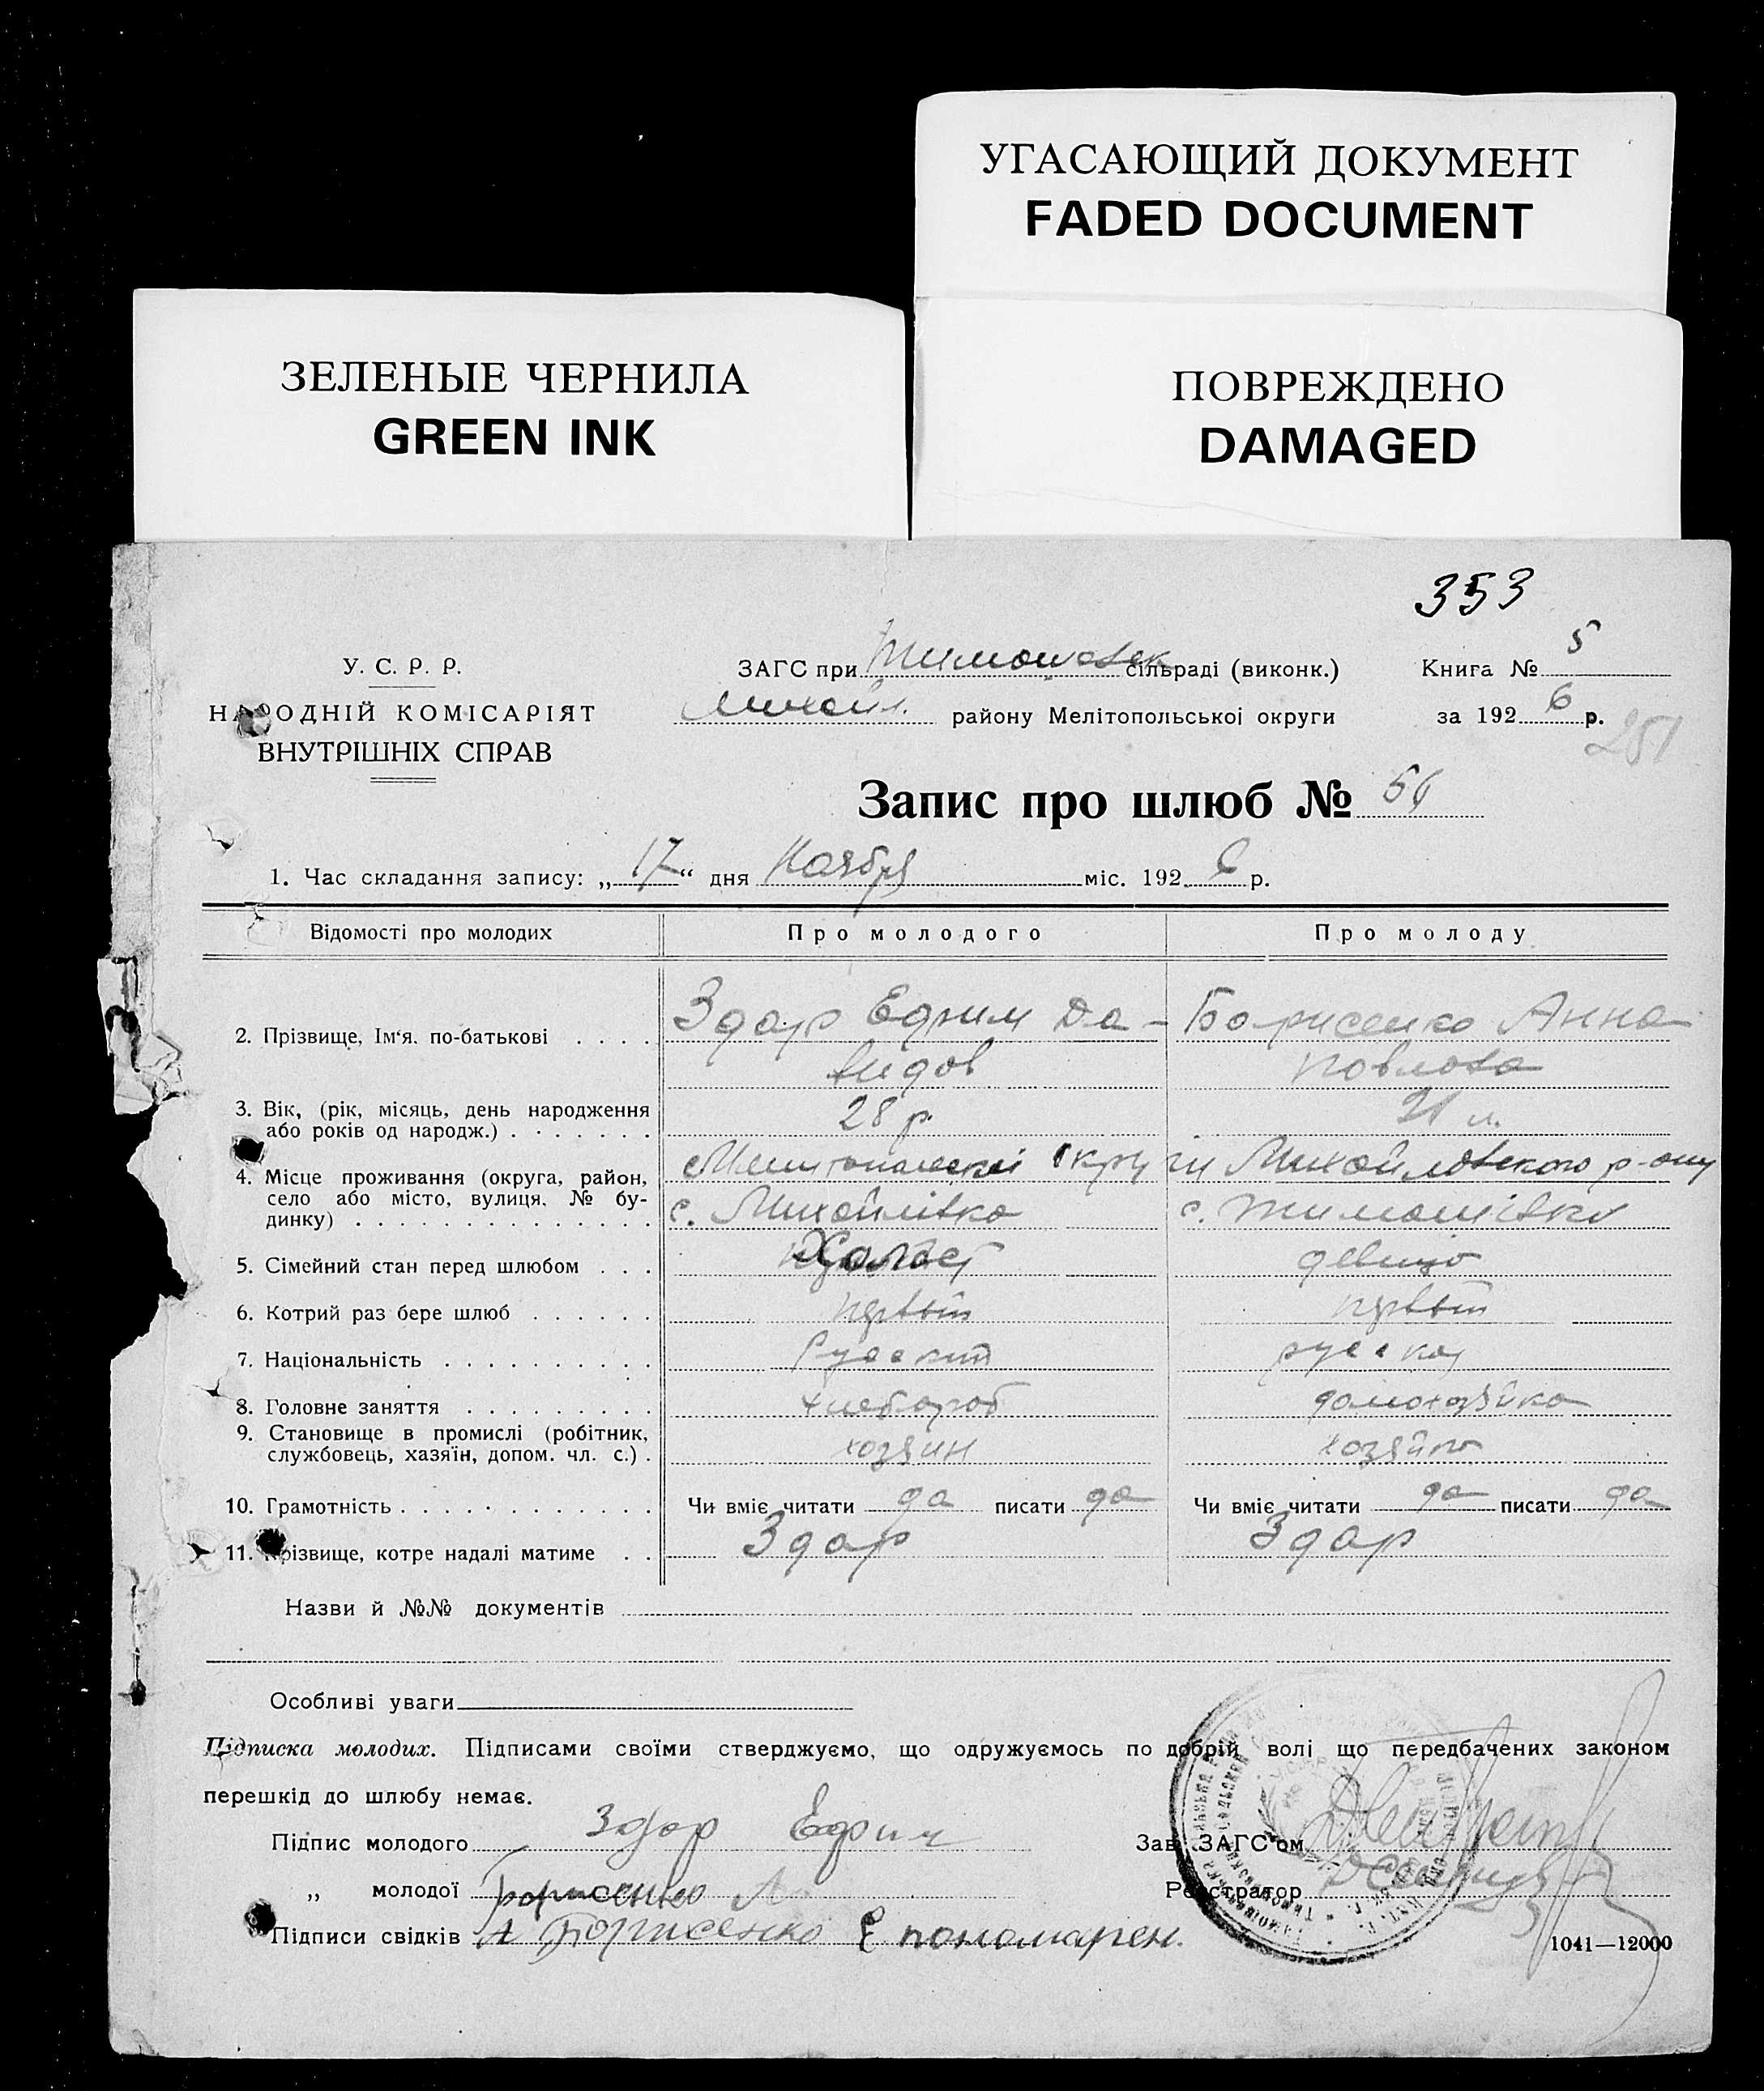 УГАСАЮЩИЙ ДОКУМЕНТ
FADED DOCUMENT
ЗЕЛЕНЫЕ ЧЕРНИЛА
GREEN INK
ПОВРЕЖДЕНО
DAMAGED
353
У. С. Р. Р.
НАРОДНІЙ КОМІСАРІЯТ
ВНУТРІШНІХ СПРАВ
ЗАГС при Тимошовск сільраді (виконк.)
Михайл. району Мелітопольської округи
Книга № 5
за 192 6 р.
251
Запис про шлюб № 54
1. Час складання запису: „ 17 “ дня Ноября міс. 192 6 р.
Відомості про молодих Про молодого Про молоду
2. Прізвище, Ім‘я, по-батькові . . . . Здар Ефим Да- Борисенко Анна
видов Павлова
3. Вік, (рік, місяць, день народження
або років од народж.) . . . . . . . 28 р. 21 л.
4. Місце проживання (округа, район, Мелитопольскої округи Михайловского р-ону
село або місто, вулиця, № бу-
динку) . . . . . . . . . . . . . . с. Михайлівка с. Тимошівка
5. Сімейний стан перед шлюбом . . . Холост девица
6. Котрий раз бере шлюб . . . . . . первый первый
7. Національність . . . . . . . . . . Руский руская
8. Головне заняття . . . . . . . . . хлебороб домохозяйка
9. Становище в промислі (робітник,
службовець, хазяїн, допом. чл. с.) . хозяин хозяйка
10. Грамотність . . . . . . . . . . . . Чи вміє читати да писати да Чи вміє читати да писати да
11. Прізвище, котре надалі матиме . . Здар Здар
Назви й №№ документів
Особливі уваги
Підписка молодих. Підписами своїми стверджуємо, що одружуємось по добрій волі що передбачених законом
перешкід до шлюбу немає.
Підпис молодого Здор Ефим
Зав. ЗАГС'ом
„ молодої Борисенко А
Реєстратор
Підписи свідків А Борисенко Е пономарен.
1041—12000